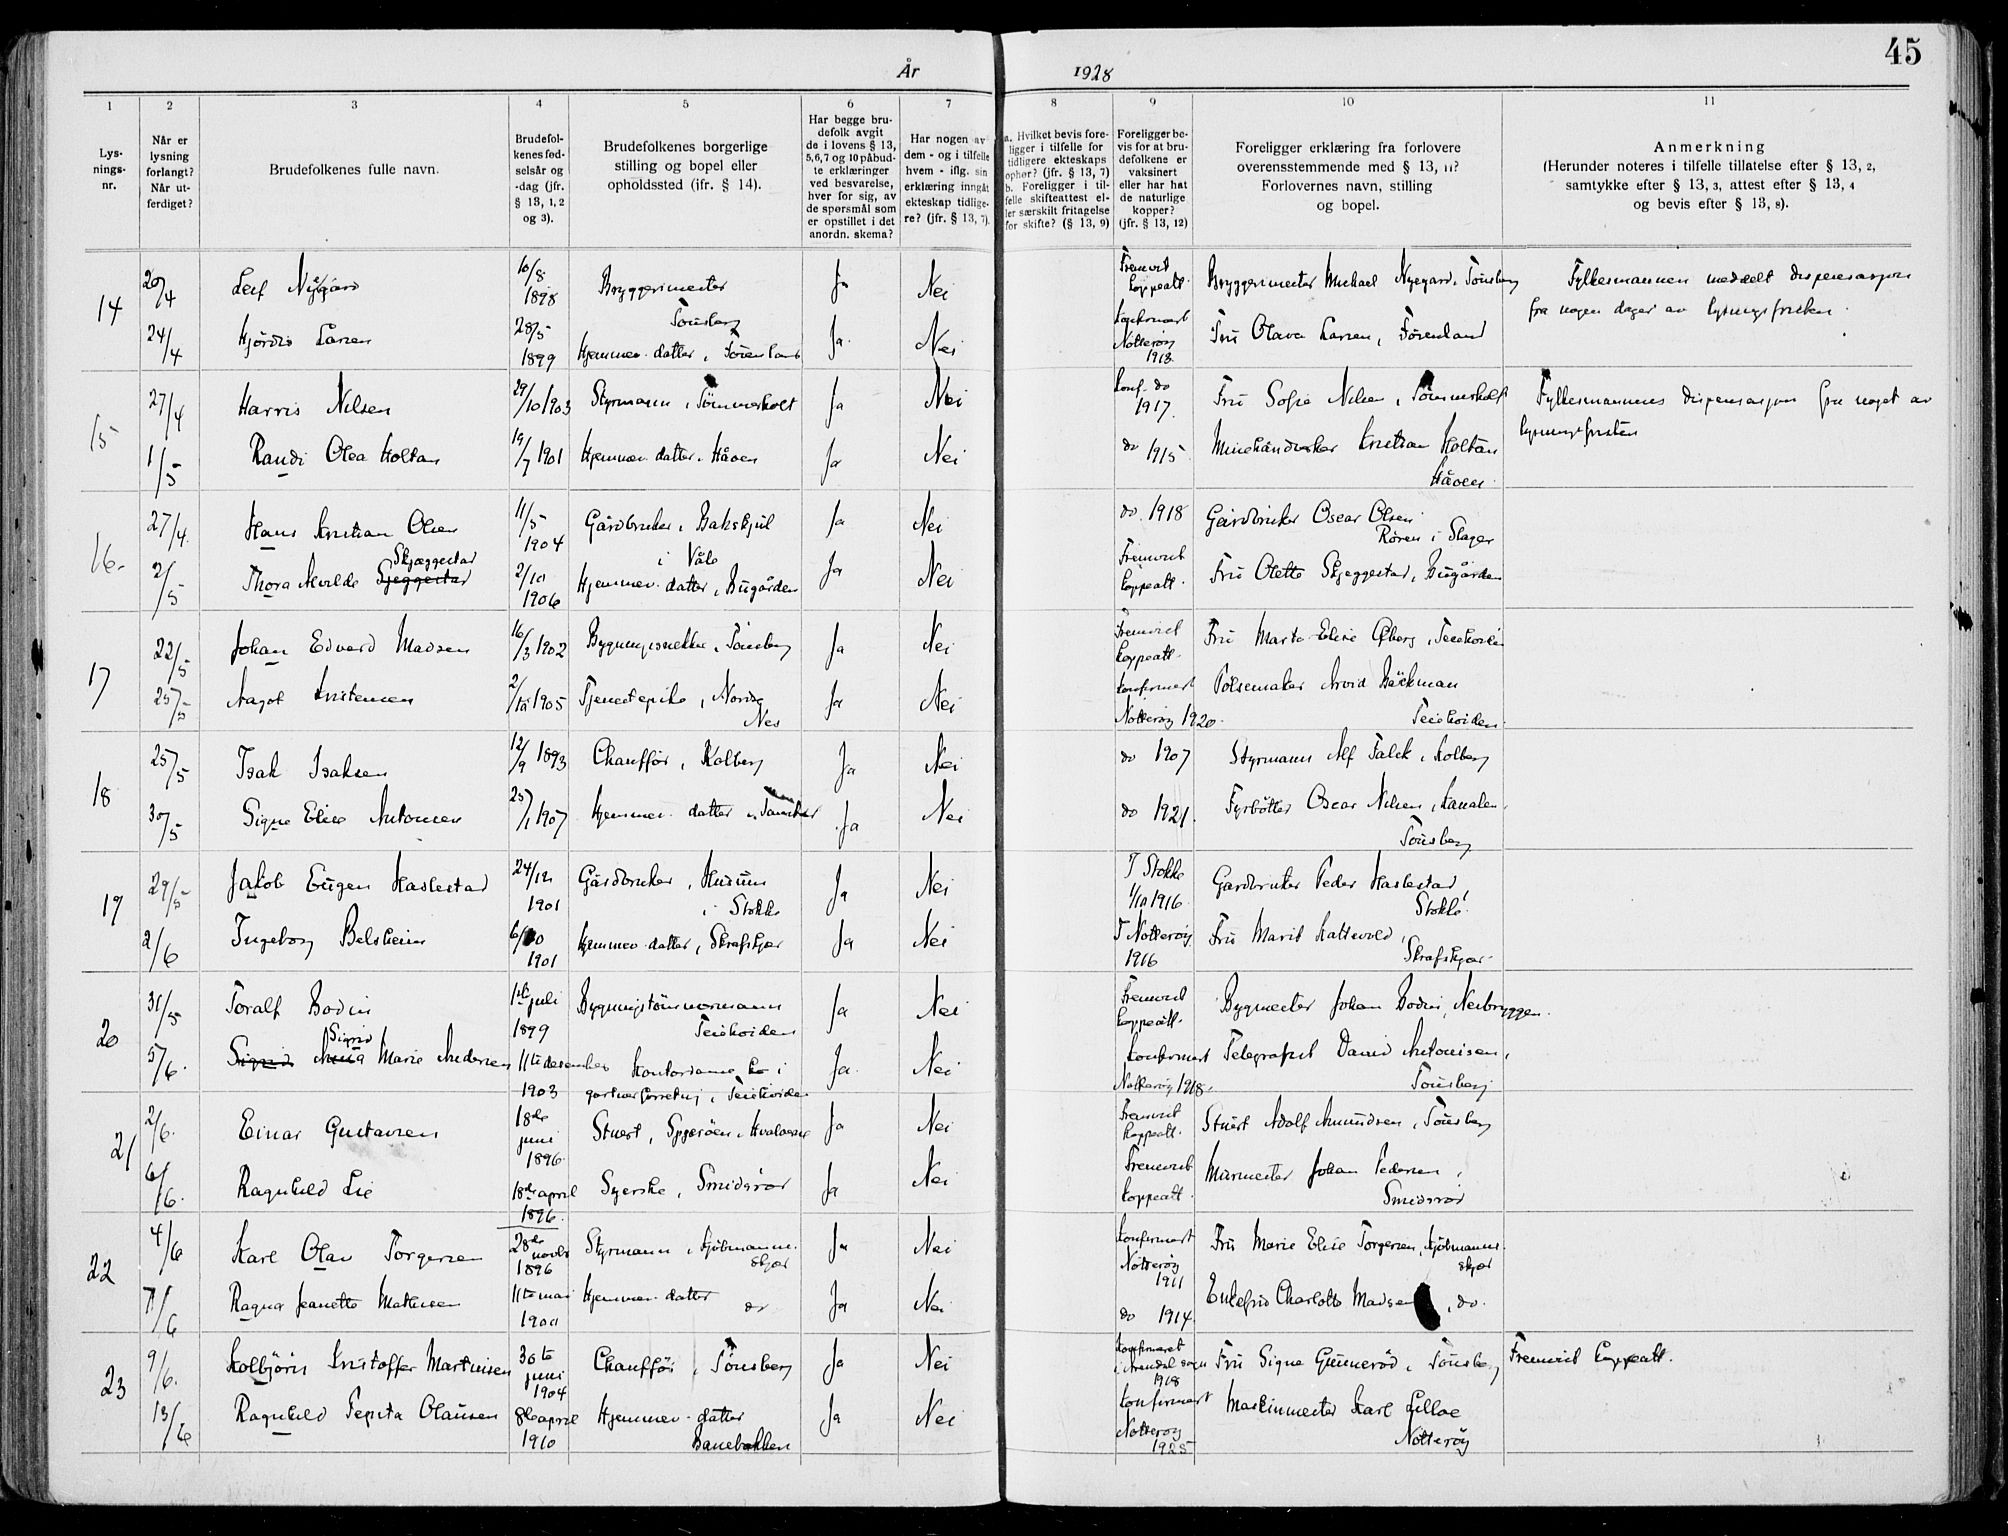 45
År 1928
1 2 3 4 5 6 7 8 9 10 11
Lys-
nings-
nr.
Når er
lysning
forlangt?
Når ut-
ferdiget?
Brudefolkenes fulle navn.
Brudefol-
kenes fød-
selsår og
-dag (jfr.
§ 13, 1, 2
og 3).
Brudefolkenes borgerlige
stilling og bopel eller
opholdssted (jfr. § 14).
Har begge bru-
defolk avgit
de i lovens § 13,
5, 6, 7 og 10 påbud-
te erklæringer
ved besvarelse,
hver for sig, av
de spørsmål som
er opstillet i det
anordn. skema?
Har nogen av
dem - og i tilfelle
hvem - iflg. sin
erklæring inngåt
ekteskap tidlige-
re? (jfr. § 13, 7).
a. Hvilket bevis fore-
ligger i tilfelle for
tidligere ekteskaps
ophør? (jfr. § 13, 7)
b. Foreligger i til-
felle skifteattest el-
ler særskilt fritagelse
for skifte? (§ 13, 9)
Foreligger be-
vis for at bru-
defolkene er
vaksinert
eller har hat
de naturlige
kopper?
(jfr. § 13, 12)
Foreligger erklæring fra forlovere
overensstemmende med § 13, 11?
Forlovernes navn, stilling
og bopel.
Anmerkning
(Herunder noteres i tilfelle tillatelse efter § 13, 2,
samtykke efter § 13, 3, attest efter § 13, 4
og bevis efter § 13, 8).
14 20/4 Leif Nygård 10/8 1898 Bryggerimester Tønsberg Ja Nei Fremvist koppeatt. Bryggerimester Michael Nyegaard, Tønsberg Fylkesmannen meddelt dispensasjon
fra nogen dager av lysningsfristen.
24/4 Hjørdis Larsen 28/5 1899 Hjemmev. datter, Førenland Ja. Nei Konfirmert Nøtterøy 1913. Fru Olava Larsen, Førenland
15 27/4 Harris Nilsen 29/10 1903 Styrmann, Tømmerholt Ja Nei Konf. do 1917. Fru Sofie Nilsen, Tømmerholt Fylkesmannens dispensasjon fra noget av
lysningsfristen
1/5 Randi Olea Holtan 19/7 1901 Hjemmev. datter, Håven Ja Nei do 1915 Kristian Holtan Håven
16. 27/4. Hans Kristian Olsen 11/5 1904 Gårdbruker, Bakskjul i Våle Ja Nei do. 1918 Gårdbruker Oscar Olsen Røren i Slagen
2/5 Thora Alvilde Sjeggestad Skjæggestad 2/10 1906 Hjemmev. datter, Bugården Ja Nei Fremvist koppeatt. Fru Olette Skjeggestad, Bugården
17 22/5 Johan Edvard Madsen 16/3 1902 Bygningssnekker, Tønsberg Ja Nei Fremvist koppeatt. Fru Marte Elise Åberg, Teiehøiden
25/5 Aagot Kristensen 2/12 1905 Tjenestepike, Nordre Nes Ja Nei Konfirmert Nøtterøy 1920. Pølsemaker Arvid Bäckman Teiehøiden.
18 25/5 Isak Isaksen 12/9 1893 Chauffør, Kolberg Ja Nei do 1907 Styrmann Alf Falck, Kolberg
30/5 Signe Elise Antonsen 25/1 1907 Hjemmev. datter Ja Nei do 1921. Fyrbøter Oscar Nilsen, Kanalen, Tønsberg
19 29/5 Jakob Eugen Haslestad 24/12 1901 Gårdbruker, Husum i Stokke Ja Nei I Stokke 1/10 1916. Gardbruker Peder Haslestad, Stokke.
2/6 Ingeborg Belsheim 1901 Hjemmev. datter, Skrafskjær Ja Nei I Nøtterøy 1916 Fru Marit Kattevold, Skrafskjær.
20 31/5 Toralf Bodin 1ste juli 1899 Bygningstømmermann Teiehøiden Ja Nei Fremvist koppeatt. Bygmester Johan Bodin, Nesbryggen.
5/6. Sigrid Anna Sigrid Marie Andersen 11te desember 1903 Kontordame hos i gartnerforretning, Teiehøiden Ja. Nei Konfirmert Nøtterøy 1918. Telegrafist David Antonisen, Tønsberg
21 2/6. Einar Gustavsen 18de juni 1896. Stuert, Spjærøen, Hvaløerne Ja Nei Fremvist koppeatt. Stuert Adolf Amundsen, Tønsberg
6/6. Ragnhild Lie 18de april 1896. Syerske, Smidsrød Ja Nei Fremvist koppeatt. Murmester Johan Pedersen, Smidsrød
22 4/6 Karl Olav Torgersen 28de novbr 1896 Styrmann, Kjøbmannskjær Ja Nei Konfirmert Nøtterøy 1911 Fru Marie Elise Torgersen, Kjøbmannskjær
7/6 Ragna Jeanette Mathisen 11te mai 1900 Hjemmev. datter do Ja Nei do 1914. Enkefru Charlotte Madsen, do.
23 9/6. Kolbjørn Kristoffer Martinsen 30te juni 1904 Chauffør, Tønsberg Ja Nei Konfirmeret i Arendal sogn 1918 Fru Signe Gunnerød, Tønsberg Fremvist koppeatt.
13/6 Ragnhild Pepita Olausen 8de april 1910 Hjemmev. datter Banebakken Ja Nei Konfirmert Nøtterøy 1925 Maskinmester Karl Lilloe Nøtterøy